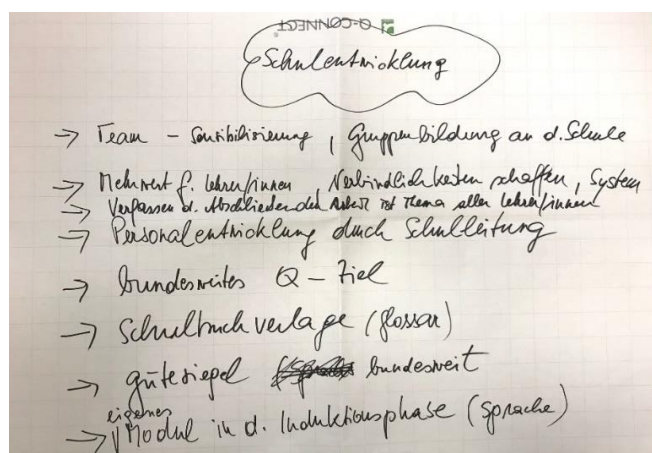 Q-CONNECT
Schulentwicklung
→ Team - Sensibilisierung, Gruppenbildung an d. Schule
→ Mehrwert f. Lehrer/innen, Verbindlichkeiten schaffen, System
→ Verfassen d. Abschließenden Arbeit ist Thema aller Lehrer/innen
→ Personalentwicklung durch Schulleitung
→ bundesweites Q-Ziel
→ Schulbuchverlage (Glossar)
→ Gütesiegel bundesweit
eigenes
→ Modul in d. Induktionsphase (Sprache)